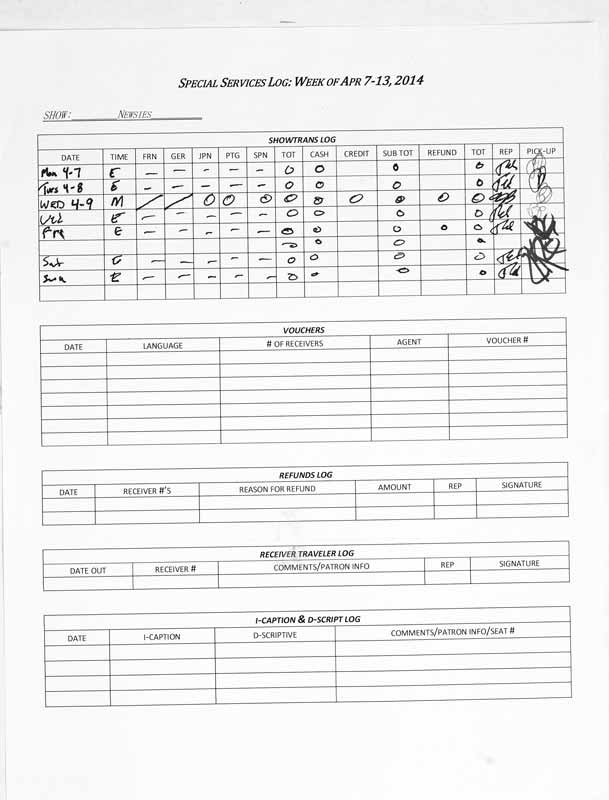 SPECIAL SERVICES LOG: WEEK OF APR 7-13, 2014
SHOW: NEWSIES
SHOWTRANS LOG
DATE TIME FRN GER JPN PTG SPN TOT CASH CREDIT SUB TOT REFUND TOT REP PICK-UP
Mon 4-7 E — — — — — 0 0 0 0
Tues 4-8 E — — — — — 0 0 0 0
WED 4-9 M / / 0 0 0 0 0 0 0 0 0
E — — — — — 0 0 0 0
Fri E — — — — — 0 0 0 0 0
— 0 0 0 0
Sat E — — — — — 0 0 0 0
Sun E — — — — — 0 0 0 0
VOUCHERS
DATE LANGUAGE # OF RECEIVERS AGENT VOUCHER #
REFUNDS LOG
DATE RECEIVER #'S REASON FOR REFUND AMOUNT REP SIGNATURE
RECEIVER TRAVELER LOG
DATE OUT RECEIVER # COMMENTS/PATRON INFO REP SIGNATURE
I-CAPTION & D-SCRIPT LOG
DATE I-CAPTION D-SCRIPTIVE COMMENTS/PATRON INFO/SEAT #